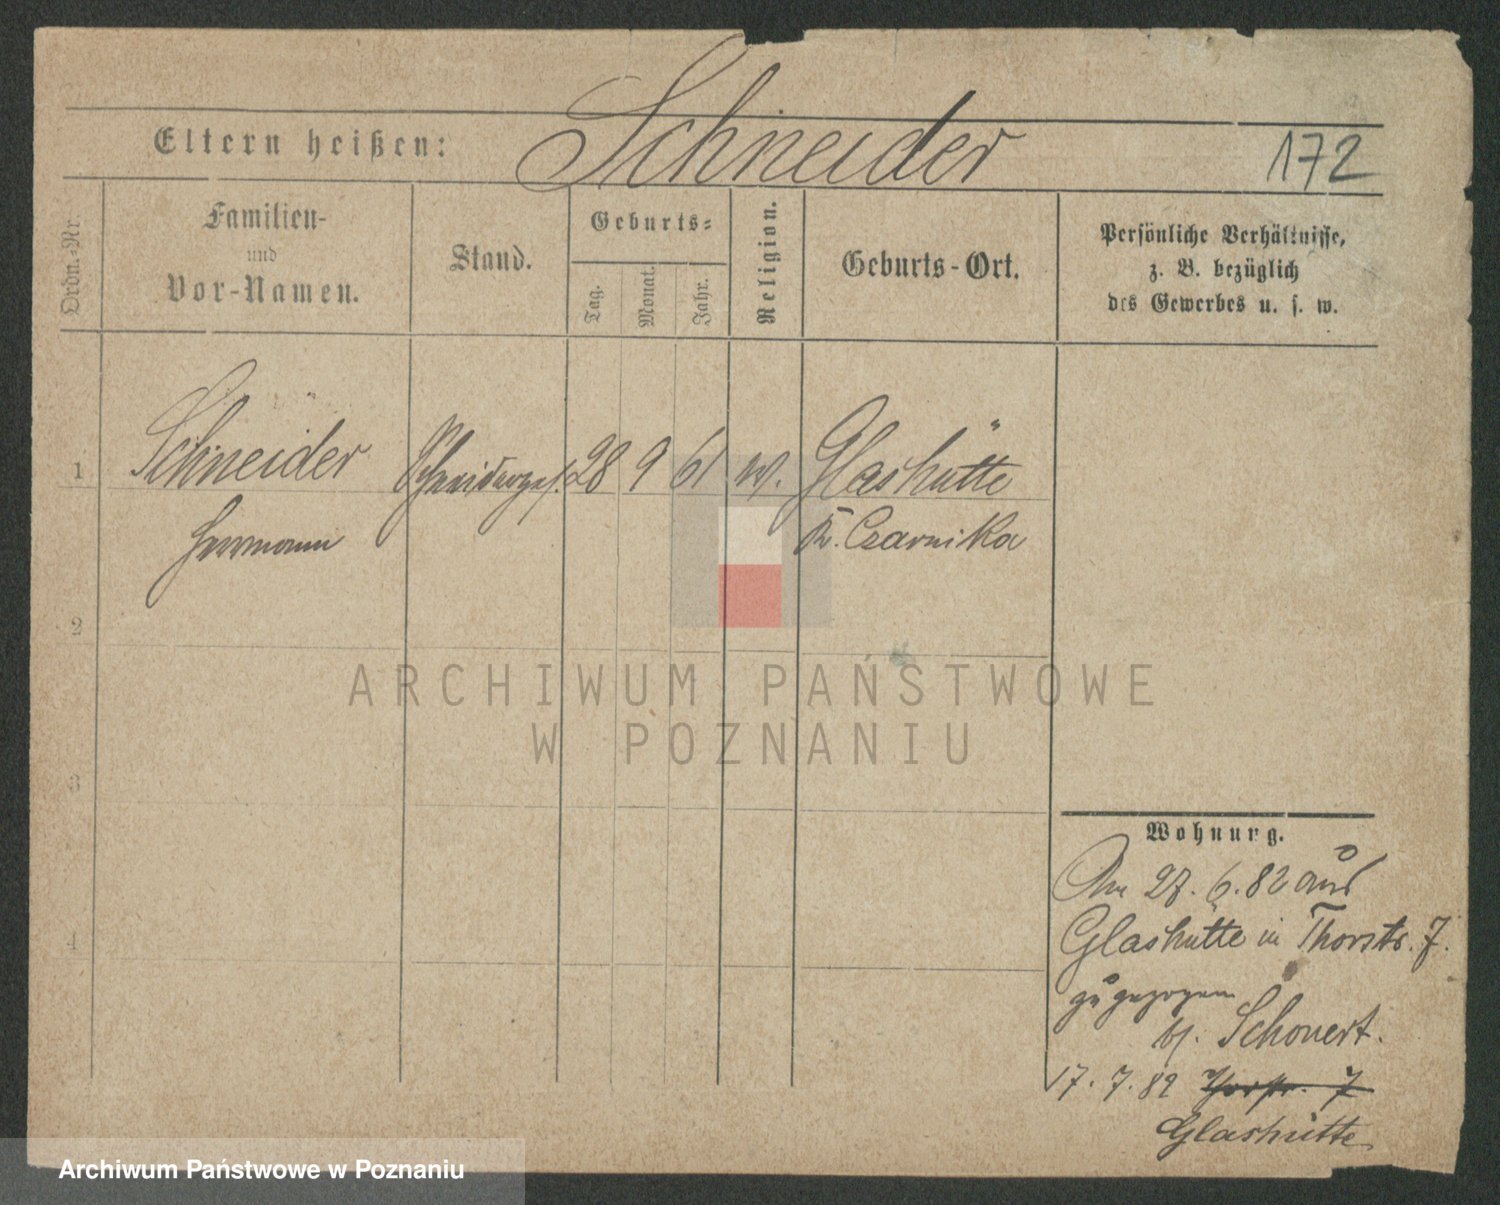 Eltern heißen: Schneider 172
Ordn.-Nr.
Familien-
und
Vor-Namen.
Stand.
Geburts-
Tag.
Monat.
Jahr.
Religion.
Geburts-Ort.
Persönliche Verhältnisse,
z. B. bezüglich
des Gewerbes u. s. w.
1 Schneider Schneiderges. 28 9 61 Glashütte
Herrmann Kr. Czarnika
2
3
4
ARCHIWUM PAŃSTWOWE
W POZNANIU
Wohnung.
Am 27. 6. 82 aus
Glashütte in Thorstr. 7.
zugezogen
Schonert.
17. 7. 82 Thorstr. 7
Glashütte
Archiwum Państwowe w Poznaniu